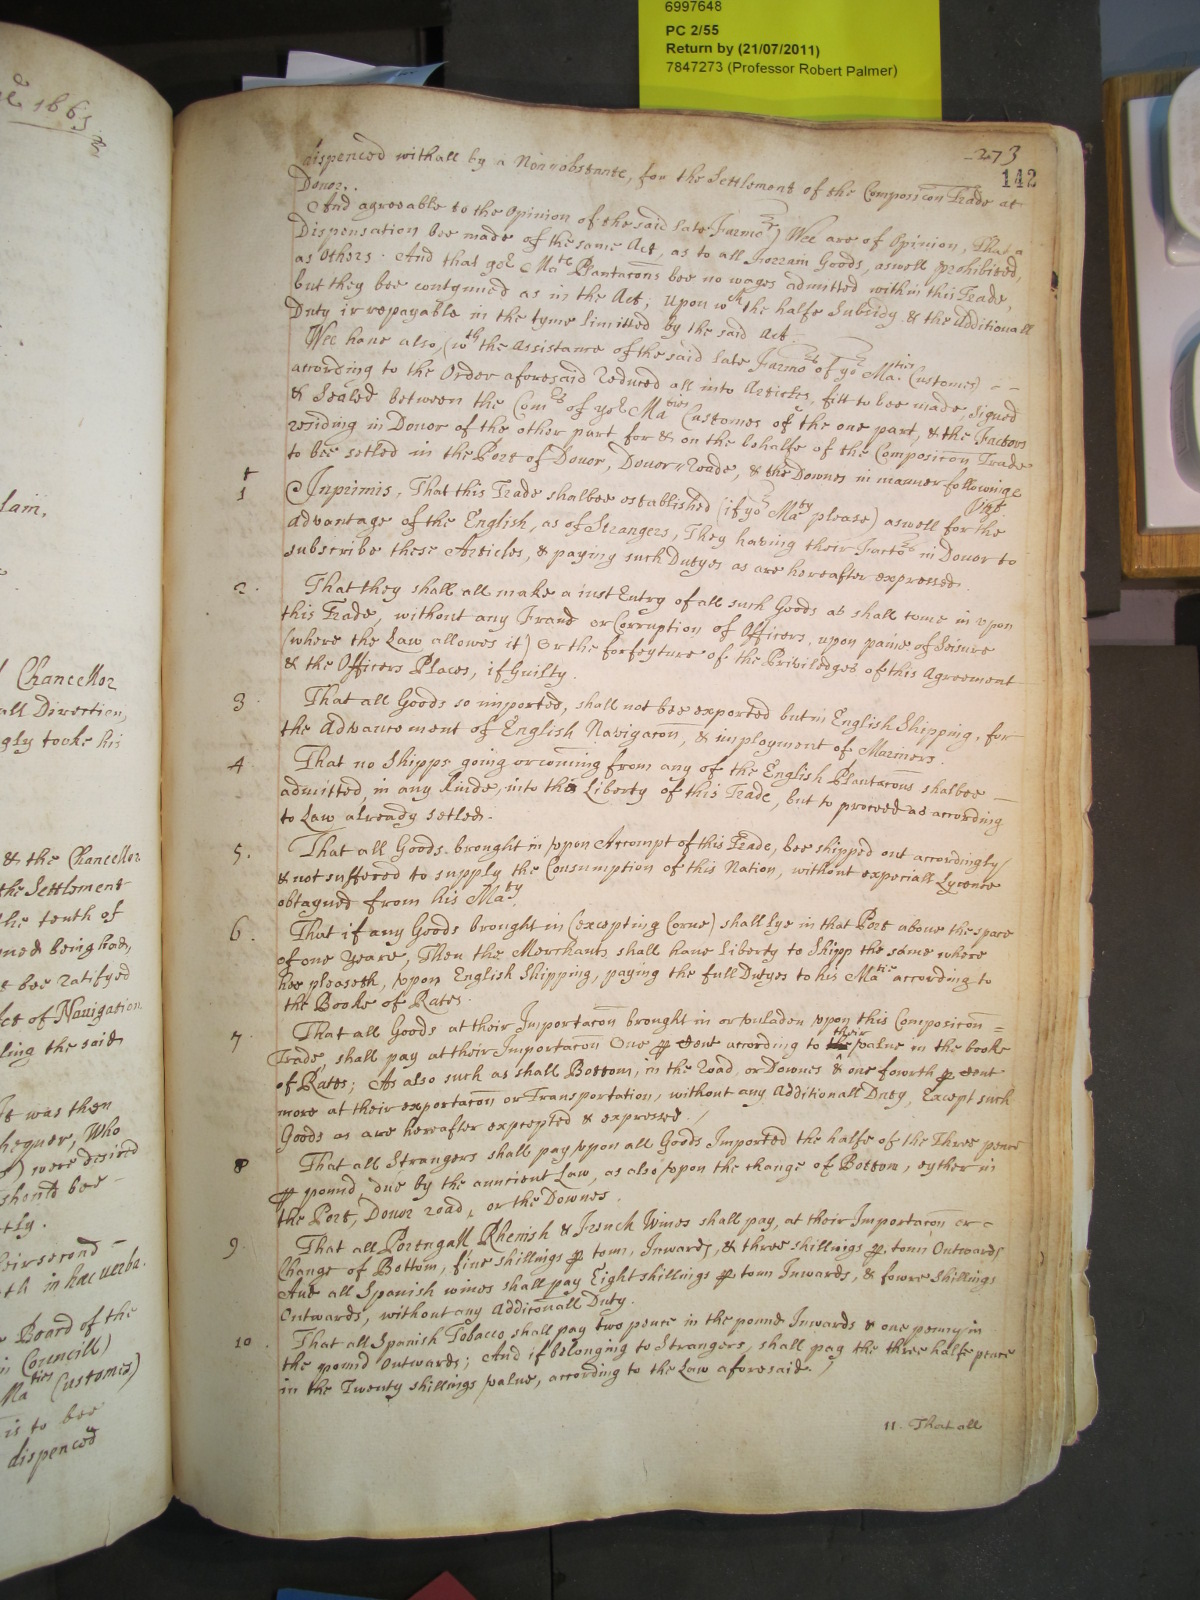 6997648
PC 2/55
Return by (21/07/2011)
7847273 (Professor Robert Palmer)
1661
273
142
dispenced withall by a Non obstante, for the Settlement of the Composicon Trade at
Dover.
And agreeable to the Opinion of the said late Farmors) Wee are of Opinion, That a
Dispensation bee made of the same Act, as to all Forrain Goods, aswell prohibited,
as others. And that yor Mats Plantacons bee no wayes admitted within this Trade,
but they bee contynued as in the Act; Upon wch the halfe Subsidy & the Additionall
Duty is repayable in the tyme limitted by the said Act.
Wee have also, (wth the Assistance of the said late Farmors of yor Maties Customes)
according to the Order aforesaid reduced all into Articles, fitt to bee made, Signed
& Sealed between the Comrs of yor Maties Customes of the one part, & the Factors
residing in Dover of the other part for & on the behalfe of the Composicon Trade
to bee setled in the Port of Dover, Dover Roade, & the Downes in manner following
vizt.
1 Inprimis, That this Trade shalbee established (if yor Maty please) aswell for the
advantage of the English, as of Strangers, They having their Factors in Dover to
subscribe these Articles, & paying such Dutyes as are hereafter expressed.
2. That they shall all make a iust Entry of all such Goods as shall come in vpon
this Trade, without any Fraud or Corruption of Officers, upon paine of Seisure
(where the Law allowes it) Or the forfeyture of the Priviledges of this Agreement
& the Officers Places, if Guilty.
3 That all Goods so imported, shall not bee exported but in English Shipping, for
the advancement of English Navigacon, & imployment of Mariners.
4 That no Shipps going or coming from any of the English Plantacons shalbee
admitted in any kinde, into the Liberty of this Trade, but to proceed as according
to Law already setled.
5. That all Goods brought in vpon Accompt of this Trade, bee shipped out accordingly,
& not suffered to supply the Consumption of this Nation, without especiall Lycence
obtayned from his Maty.
6. That if any Goods brought in (excepting Corne) shall lye in that Port above the space
of one Yeare, Then the Merchants shall have liberty to Shipp the same where
hee pleaseth, vpon English Shipping, paying the full Dutyes to his Matie according to
the Booke of Rates.
7. That all Goods at their Importacon brought in or vnladen vpon this Composicon =
Trade, shall pay at their Importacon One p Cent according to the their value in the booke
of Rates; As also such as shall Bottom, in the Road, or Downes & one fowrth p Cent
more at their exportacon or Transportation, without any Additionall Duty, Except such
Goods as are hereafter excepted & expressed.
8 That all Strangers shall pay vpon all Goods Imported the halfe of the Three pence
p pound, due by the auncient Law, as also vpon the change of Bottom, eyther in
the Port, Dover road, or the Downes.
9. That all Portugall Rhenish & French Wines shall pay, at their Importacon or
Change of Bottom, five shillings p tonn, Inwards, & three shillings p tonn Outwards
And all Spanish wines shall pay Eight shillings p tonn Inwards, & fowre Shillings
Outwards, without any Additonall Duty.
10. That all Spanish Tobacco shall pay two pence in the pound Inwards & one penny in
the pound Outwards; And if belonging to Strangers, shall pay the three halfe pence
in the Twenty shillings value, according to the Law aforesaid.
11. That all
Chancellor
all Direction,
tooke his
& the Chancellor
the Settlement
the tenth of
being had,
bee Ratifyed
Act of Navigation
the said
It was then
Who
were desired
should bee
second
in haec verba.
Board of the
in Councill)
Maties Customes)
is to bee
dispenced